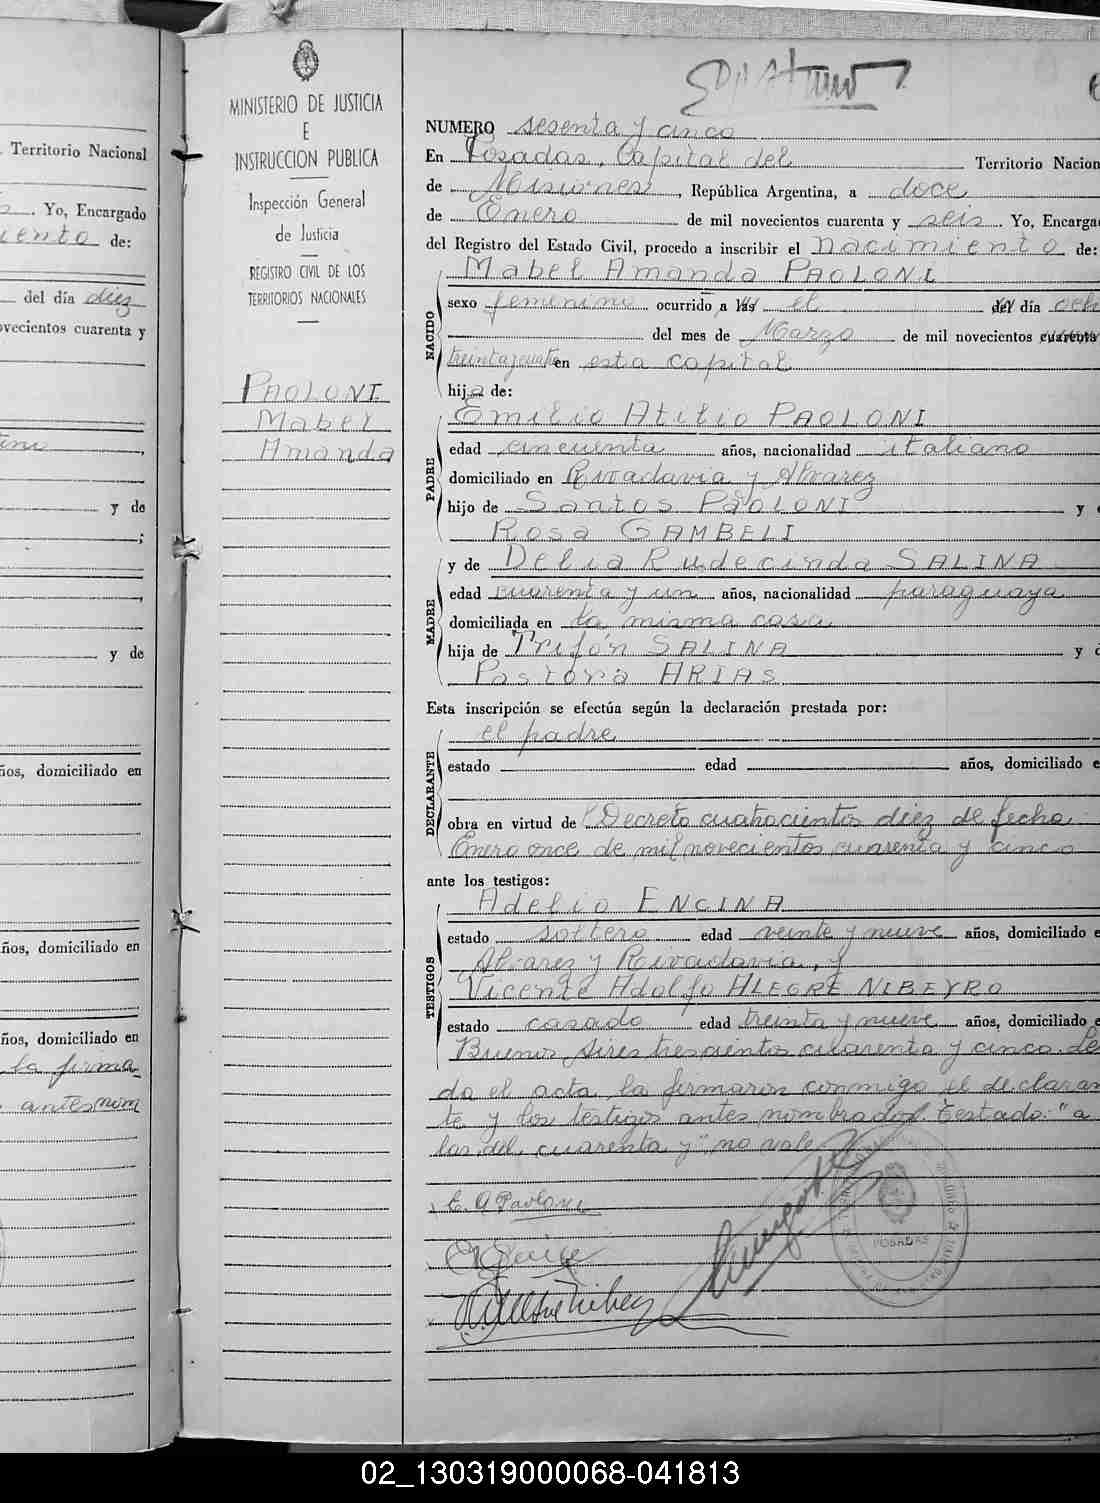 . Territorio Nacional
. Yo, Encargado
iento de:
del día diez
ovecientos cuarenta y
,
y de
;
,
y de
ños, domiciliado en
ños, domiciliado en
ños, domiciliado en
la firma
antes nom
MINISTERIO DE JUSTICIA
E
INSTRUCCION PUBLICA
Inspección General
de Justicia
REGISTRO CIVIL DE LOS
TERRITORIOS NACIONALES
PAOLONI
Mabel
Amanda
NUMERO sesenta y cinco
En Posadas, Capital del Territorio Nacion
de Misiones, República Argentina, a doce
de Enero de mil novecientos cuarenta y seis. Yo, Encarga
del Registro del Estado Civil, procedo a inscribir el nacimiento de:
NACIDO
Mabel Amanda PAOLONI
sexo femenino ocurrido a las el del día och
del mes de Marzo de mil novecientos cuarenta
treinta y cuatro en esta capital
hija de:
PADRE
Emilio Atilio PAOLONI
edad cincuenta años, nacionalidad italiano
domiciliado en Rivadavia y Alvarez
hijo de Santos PAOLONI y d
Rosa GAMBELI
MADRE
y de Delia Rudecinda SALINA
edad cuarenta y un años, nacionalidad paraguaya
domiciliada en la misma casa
hija de Trifón SALINA y d
Pastora ARIAS
Esta inscripción se efectúa según la declaración prestada por:
DECLARANTE
el padre
estado edad años, domiciliado e
obra en virtud de Decreto cuatrocientos diez de fecha
Enero once de mil novecientos cuarenta y cinco
ante los testigos:
TESTIGOS
Adelio ENCINA
estado soltero edad veinte y nueve años, domiciliado e
Alvarez y Rivadavia, y
Vicente Adolfo ALEGRE NIBEYRO
estado casado edad treinta y nueve años, domiciliado e
Buenos Aires trescientos cuarenta y cinco. Le
da el acta, la firmaron conmigo el declaran
te y los testigos antes nombrados. Testado: "a
las, del, cuarenta y" no vale
E. A Paoloni
POSADAS
02_130319000068-041813